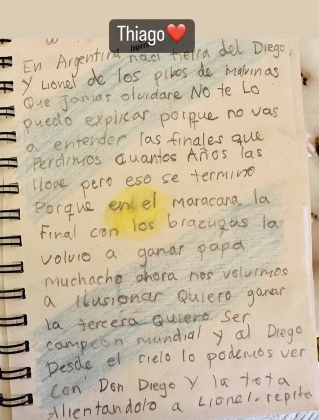 Thiago❤️
En Argentina naci tierra del Diego,
y Lionel de los pibes de malvinas
Que Jamas olvidare No te Lo
puedo explicar porque no vas
a entender las finales que
Perdimos Cuantos Años las
llore pero eso se termino
Porque en el maracana la
final con los brazugas la
volvio a ganar papá
muchacho ahora nos volvimos
a Ilusionar Quiero ganar
la tercera Quiero Ser
campeón mundial y al Diego
Desde el cielo lo podemos ver
con Don Diego y la tota
Alientandolo a Lionel. repita